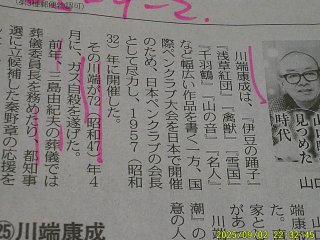 (第3種郵便物認可)
-9-2.
川端康成は、『伊豆の踊子』
『浅草紅団』『禽獣』『雪国』
『千羽鶴』『山の音』『名人』
など幅広い作品を書く一方、国
際ペンクラブ大会を日本で開催
のため、日本ペンクラブの会長
として尽力し、1957(昭和
32)年に開催した。
その川端が72(昭和47)年4
月に、ガス自殺を遂げた。
前年、三島由紀夫の葬儀では
葬儀委員長を務めたり、都知事
選に立候補した秦野章の応援を
見つめた
時代
山口
端康
家と
があ
川
潮』の
意の人
㉕川端康成
2025/09/02 22:32:45